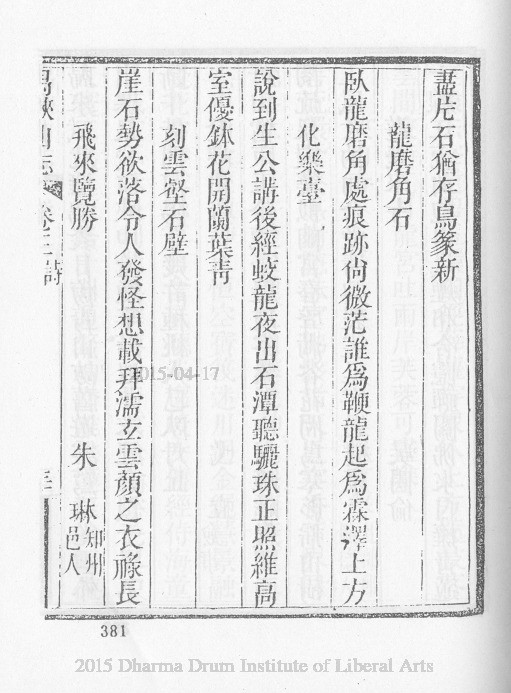 盡片石猶存鳥篆新
龍磨角石
臥龍磨角處痕跡尙微茫誰爲鞭龍起爲霖澤上方
化樂臺
說到生公講後經蛟龍夜出石潭聽驪珠正照維高
室優鉢花開蘭葉青
刻雲壑石壁
崖石勢欲落令人發怪想載拜濡玄雲顏之衣祿長
飛來覽勝 朱琳 知州邑人
禺峽山志 卷三 詩
2015-04-17
381
2015 Dharma Drum Institute of Liberal Arts